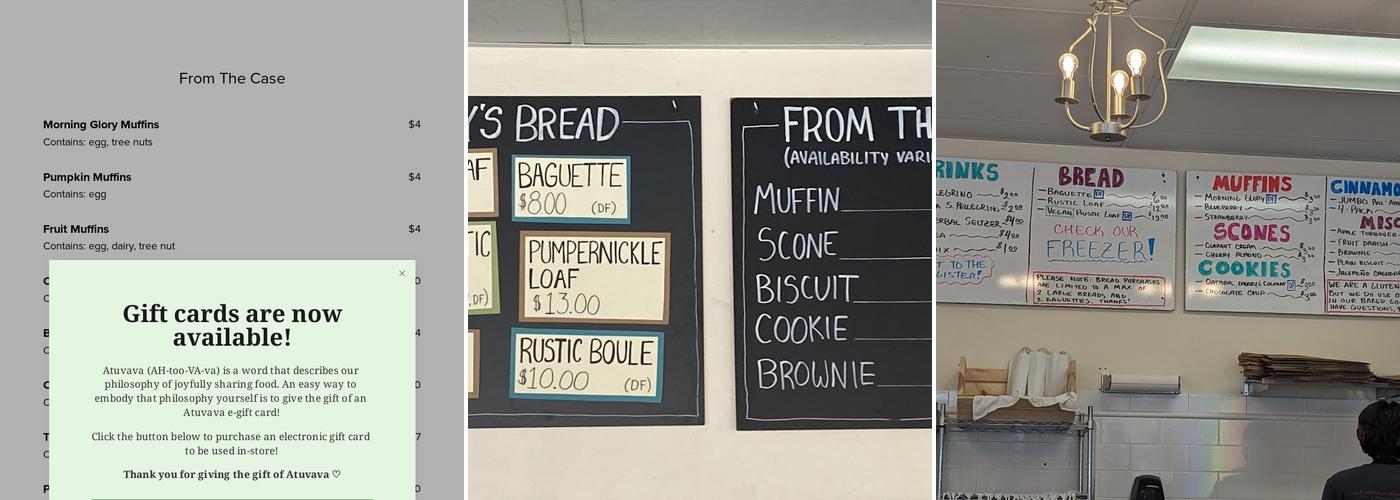 From The Case
Morning Glory Muffins $4
Contains: egg, tree nuts
Pumpkin Muffins $4
Contains: egg
Fruit Muffins $4
Contains: egg, dairy, tree nut
×
Gift cards are now
available!
Atuvava (AH-too-VA-va) is a word that describes our
philosophy of joyfully sharing food. An easy way to
embody that philosophy yourself is to give the gift of an
Atuvava e-gift card!
Click the button below to purchase an electronic gift card
to be used in-store!
Thank you for giving the gift of Atuvava ♡
Y'S BREAD
BAGUETTE
$8.00 (DF)
PUMPERNICKLE
LOAF
$13.00
RUSTIC BOULE
$10.00 (DF)
FROM TH
(AVAILABILITY VARI
MUFFIN
SCONE
BISCUIT
COOKIE
BROWNIE
RINKS
BREAD
- BAGUETTE DF
- RUSTIC LOAF
- VEGAN RUSTIC LOAF DF
CHECK OUR
FREEZER!
PLEASE NOTE: BREAD PURCHASES
ARE LIMITED TO A MAX OF
2 LARGE BREADS AND
2 BAGUETTES. THANKS!
MUFFINS
- MORNING GLORY DF
- BLUEBERRY
- STRAWBERRY
SCONES
- CURRANT CREAM
- CHERRY ALMOND
COOKIES
- OATMEAL CHERRY COCONUT DF
- CHOCOLATE CHIP
CINNAMO
- 4-PACK
MISC
- APPLE TURNOVER
- FRUIT DANISH
- BROWNIE
- PLAIN BISCUIT
WE ARE A GLUTEN